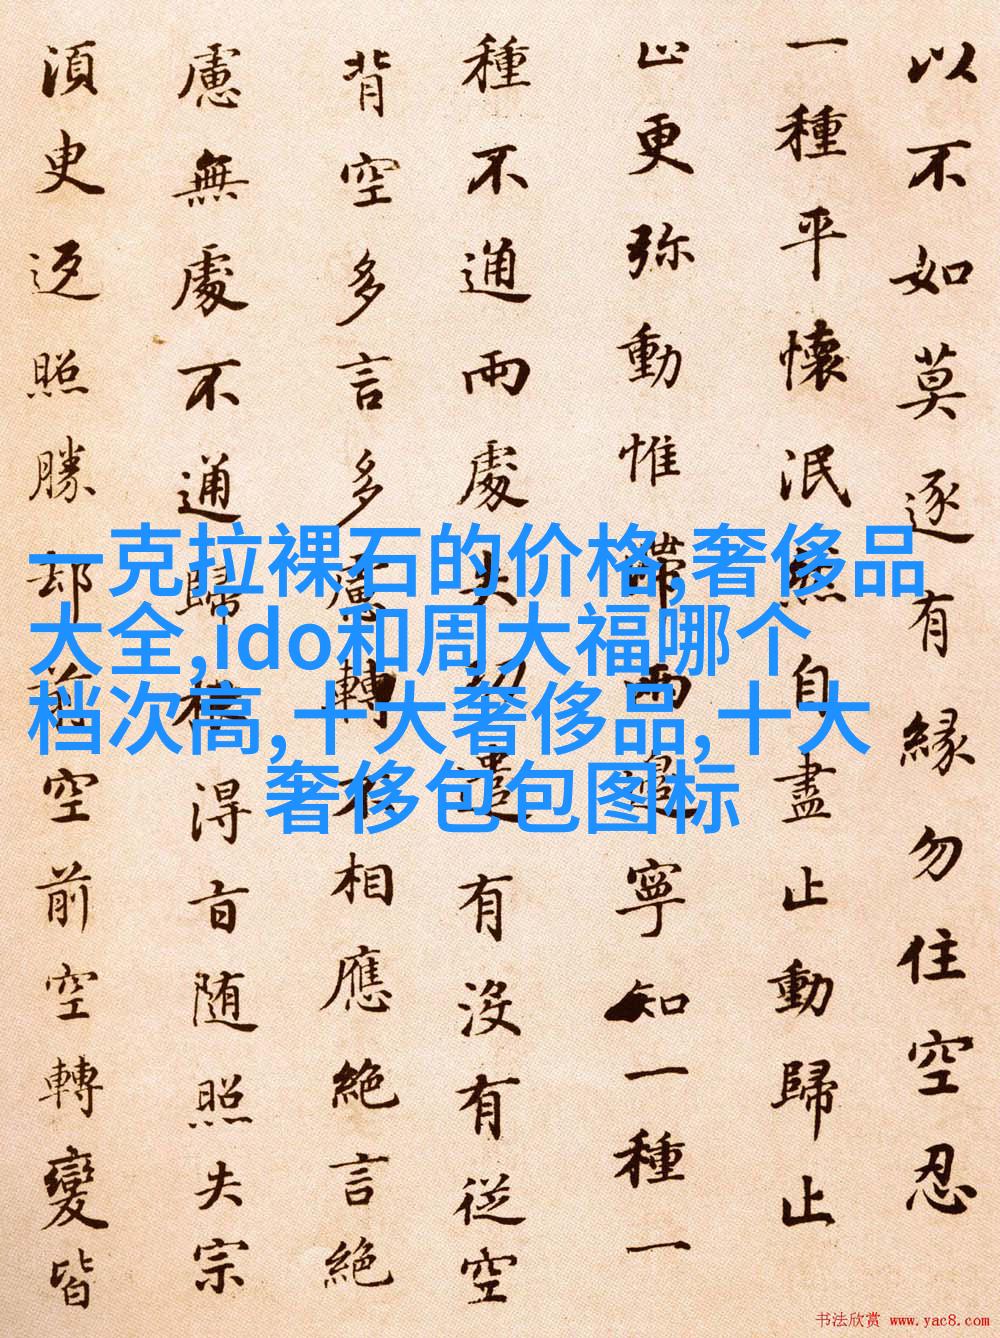 以不如莫逐有緣勿住空忍
一種平懷泯然自盡止動歸止
止更弥動惟滯兩邊寧知一種一
種不通兩處失功遣有没有従空
背空多言多慮轉不相應絶言絶
慮無處不通歸根得旨随照失宗
湏臾返照勝却前空前空轉變皆
一克拉裸石的价格,奢侈品
大全,ido和周大福哪个
档次高,十大奢侈品,十大
奢侈包包图标
书法欣赏 www.yac8.com